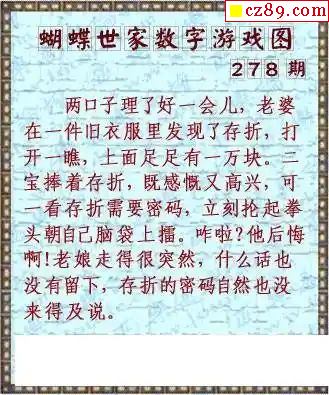 cz89.com
蝴蝶世家数字游戏图
278 期
两口子理了好一会儿，老婆
在一件旧衣服里发现了存折，打
开一瞧，上面足足有一万块。三
宝捧着存折，既感慨又高兴，可
一看存折需要密码，立刻抡起拳
头朝自己脑袋上擂。咋啦?他后悔
啊!老娘走得很突然，什么话也
没有留下，存折的密码自然也没
来得及说。